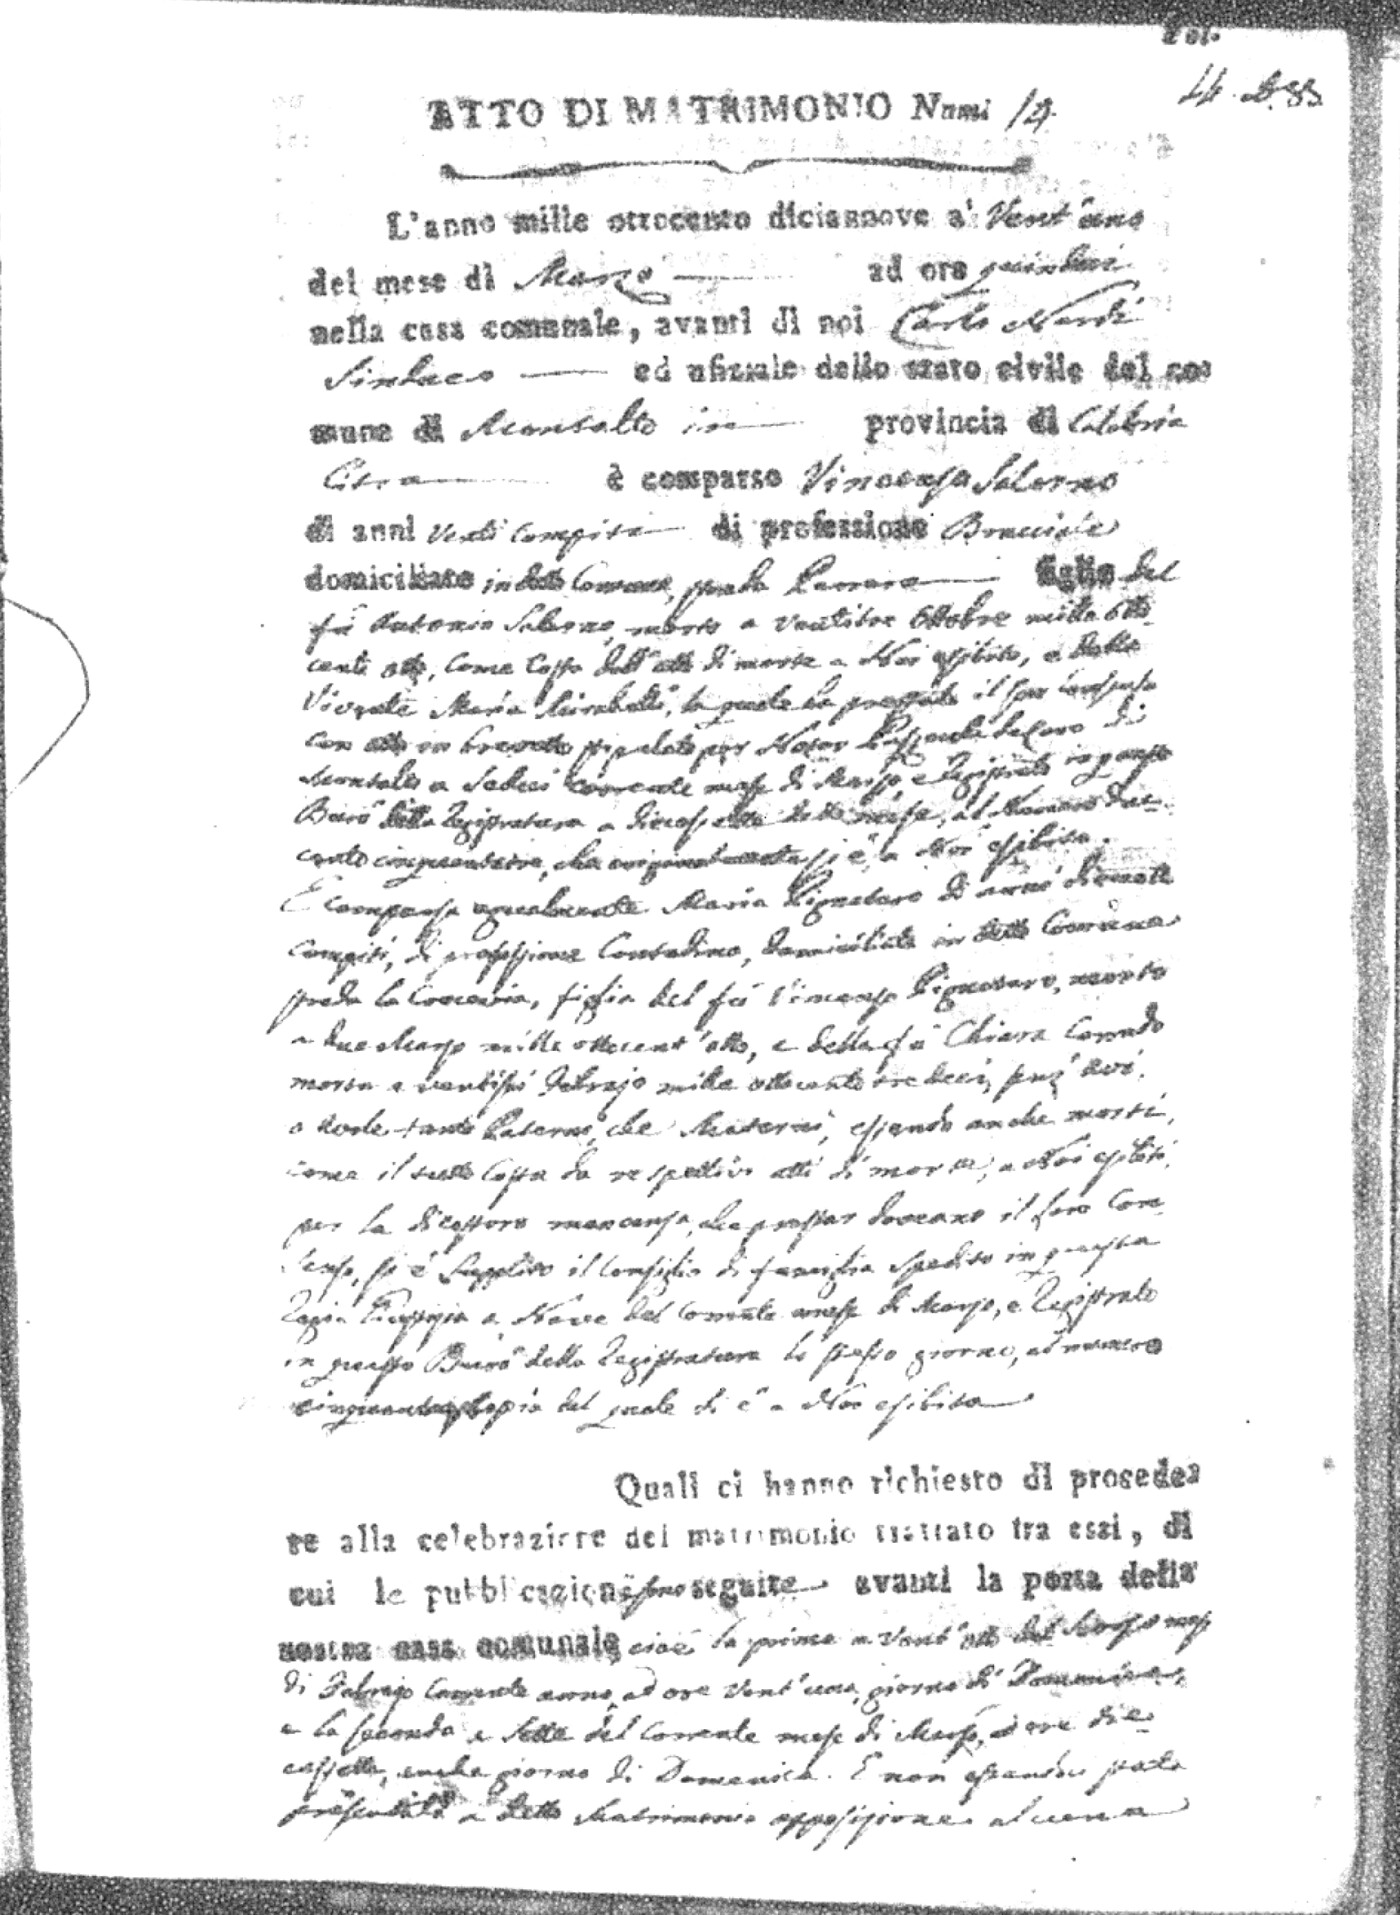 Fol.
ATTO DI MATRIMONIO Num:
L'anno mille ottocento diciannove a' Vent'uno
del mese di Marzo ad ore quindeci
nella casa comunale, avanti di noi Carlo Nardi
Sindaco ed ufiziale dello stato civile del co-
mune di Montalto in provincia di Calabria
Citra è comparso Vincenzo Salerno
di anni Venti compiti di professione Bracciale
domiciliato in detto Comune, strada figlio del
fù Antonio Salerno, morto a ventitre Ottobre mille otto-
cento otto, come costa dall'atto di morte a Noi esibito, e della
Vivente Maria la quale ha prestato il suo consenso
con atto in brevetto stipolato per Notar Pasquale di
Montalto a Sedeci corrente mese di Marzo, e registrato in questo
Burò della Registratura a diecessette detto mese, al Numero due-
cento cinquantatre, che originalmente si è a Noi esibito.
E comparsa egualmente Maria Pignataro di anni
compiti, di professione Contadina, domiciliata in detto Comune
strada la figlia del fù Vincenzo Pignataro, morto
a due Marzo mille ottocent'otto, e della fù Chiara Corrado
morta a ventisei Febrajo mille ottocento tredeci,
tanto Paterni, che Materni, essendo anche morti,
come il tutto costa da respettivi atti di morte, a Noi esibiti,
per la di costoro mancanza, che prestar doveano il loro Con-
senso, si è supplito il Consiglio di famiglia spedito in questa
Regia Giustizia a Nove del corrente mese di Marzo, e Registrato
in questo Burò della Registratura lo stesso giorno, al numero
copia del quale si è a Noi esibita
Quali ci hanno richiesto di procede-
re alla celebrazione del matrimonio trattato tra essi, di
cui le pubblicazioni sono seguite avanti la porta della
nostra casa comunale, cioè la prima a Vent'otto del scorso mese
di Febrajo corrente anno, ad ore Vent'una, giorno di Domenica,
e la seconda a Sette del corrente mese di Marzo, ad ore die-
cessette, anche giorno di Domenica. E non essendosi stata
presentata a detto Matrimonio opposizione alcuna